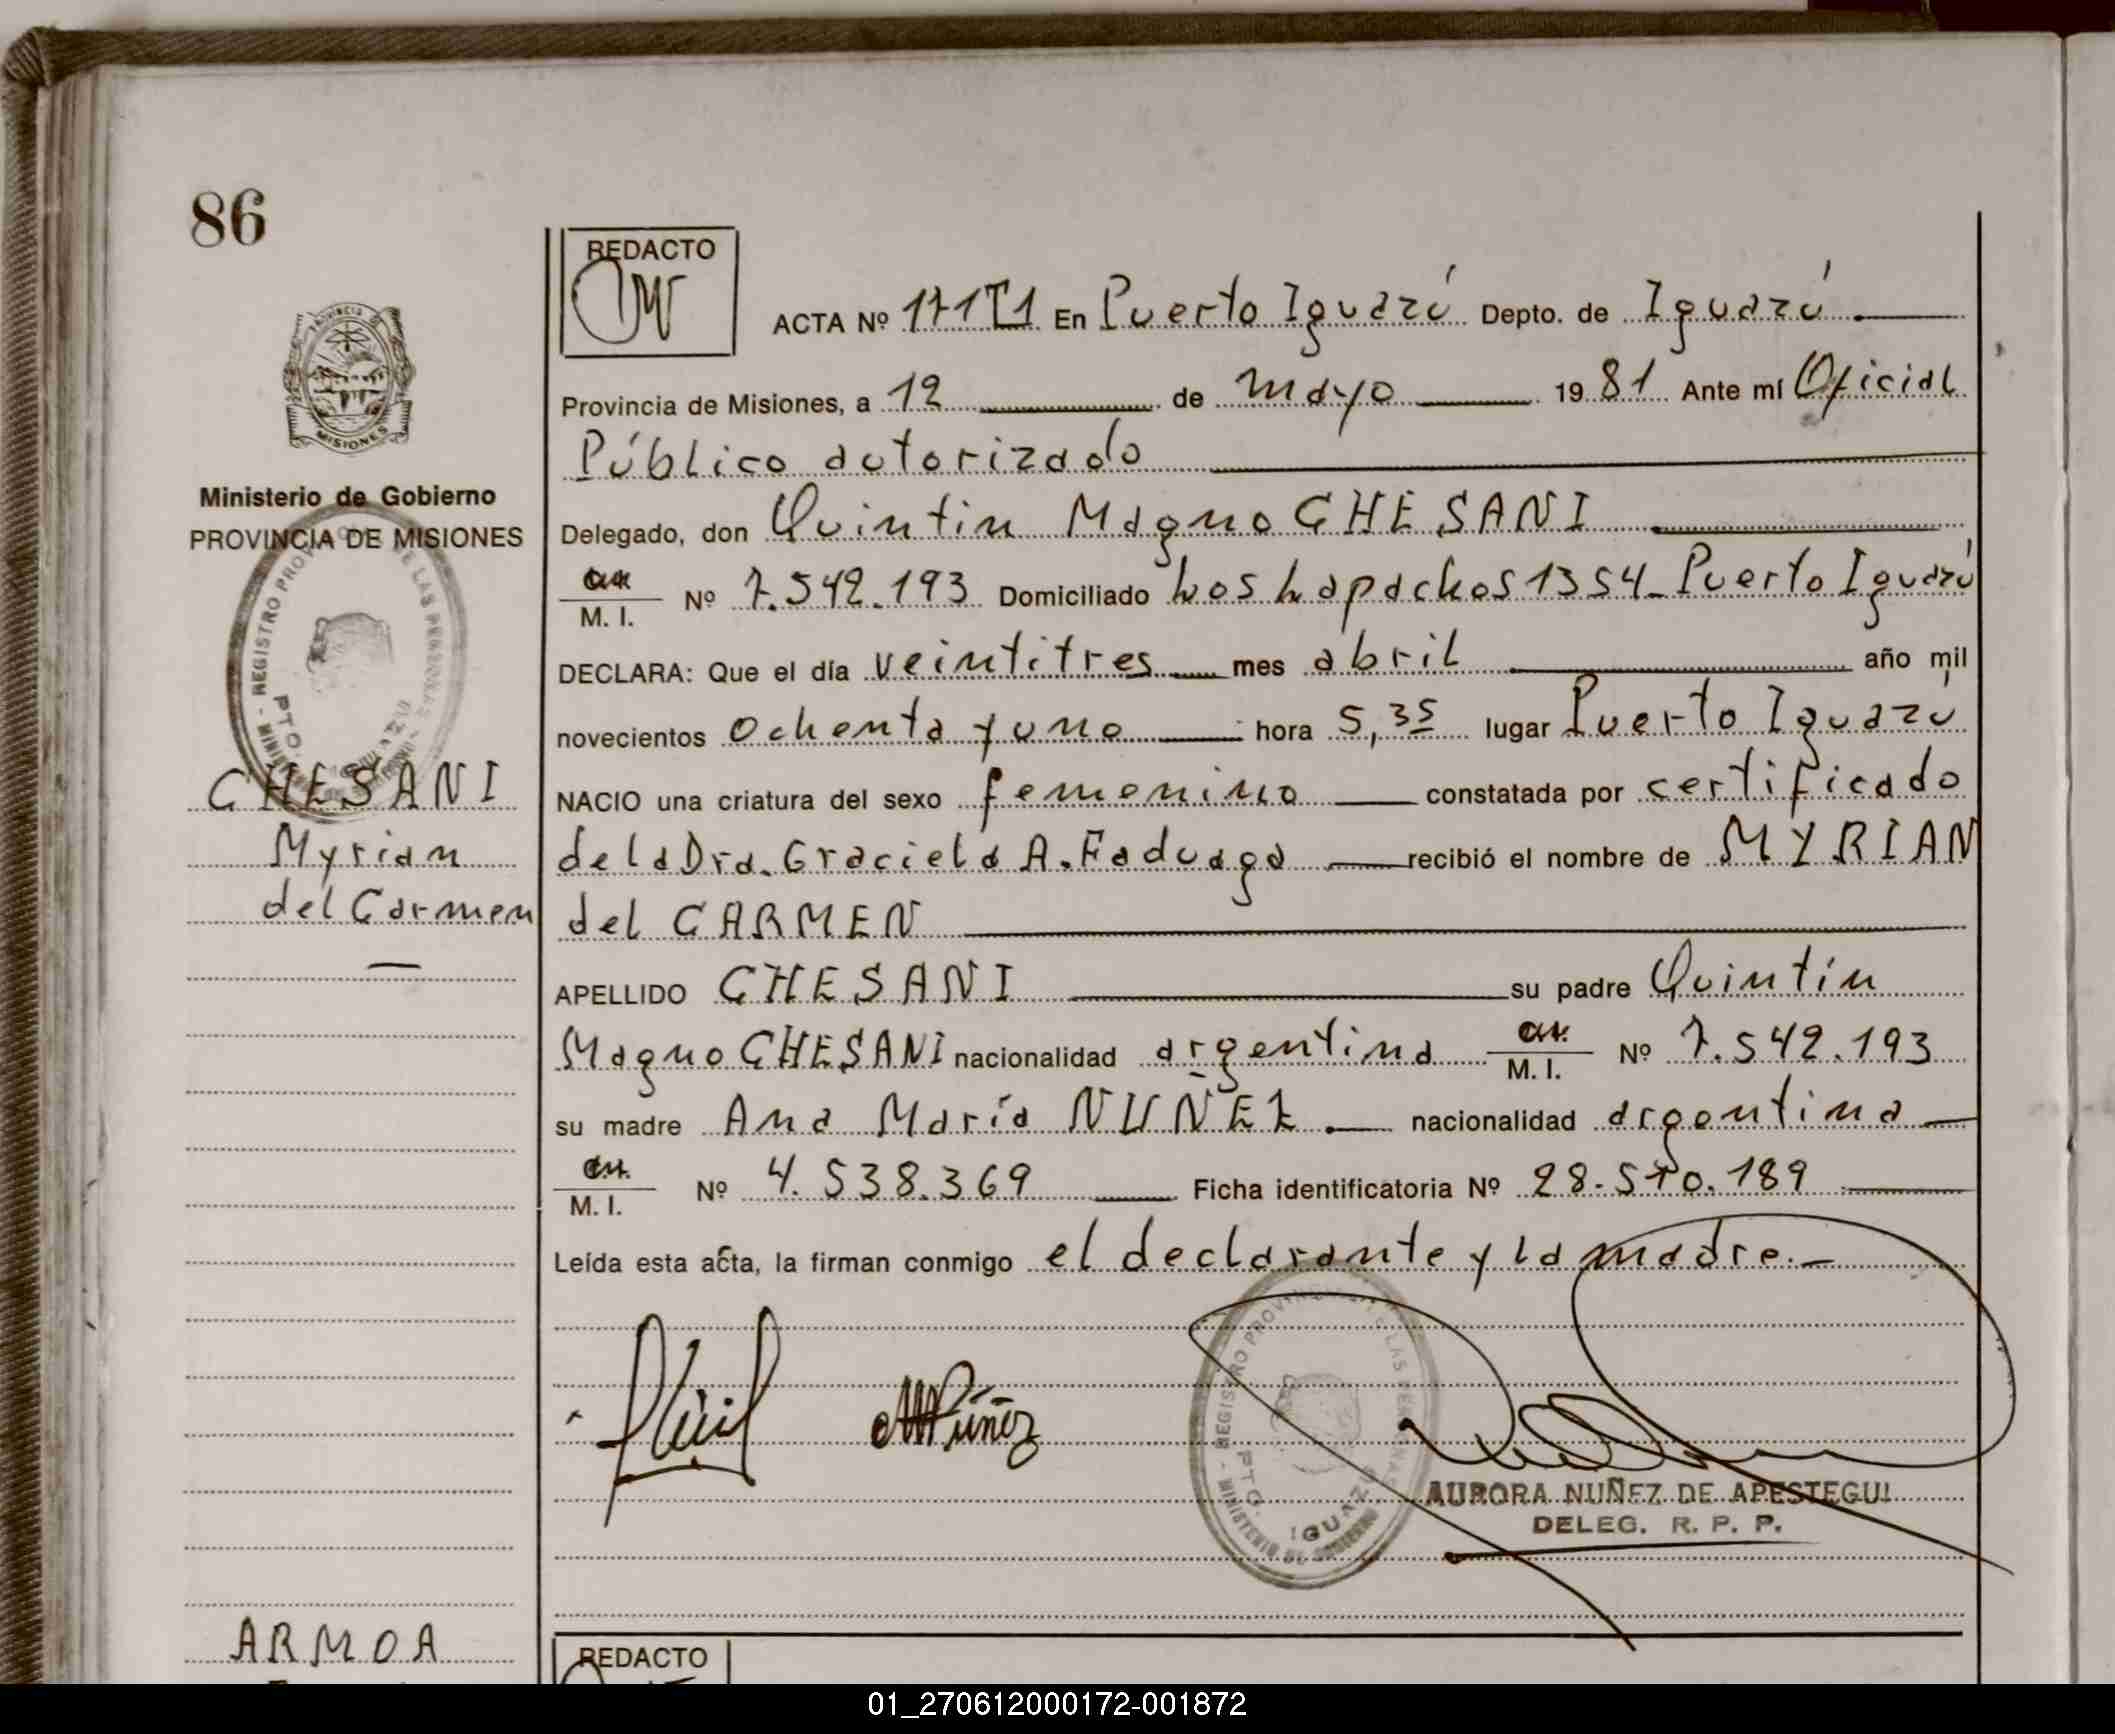 86
MISIONES
Ministerio de Gobierno
PROVINCIA DE MISIONES
CHESANI
Myrian
del Carmen
REDACTO
ACTA Nº 171T1 En Puerto Iguazú Depto. de Iguazú
Provincia de Misiones, a 12 de mayo 1981 Ante mí Oficial
Público autorizado
Delegado, don Quintin Magno CHESANI
M. I. Nº 7.542.193 Domiciliado Los Lapachos 1354 - Puerto Iguazú
DECLARA: Que el día veintitres mes abril año mil
novecientos ochenta y uno hora 5,35 lugar Puerto Iguazú
NACIO una criatura del sexo femenino constatada por certificado
de la Dra. Graciela A. Faduaga recibió el nombre de MYRIAN
del CARMEN
APELLIDO CHESANI su padre Quintín
Magno CHESANI nacionalidad argentina M. I. Nº 7.542.193
su madre Ana María NUÑEZ nacionalidad argentina
M. I. Nº 4.538.369 Ficha identificatoria Nº 28.570.189
Leída esta acta, la firman conmigo el declarante y la madre.-
Núñez
REGISTRO PROVINCIAL DE LAS PERSONAS
PTO. IGUAZU
MINISTERIO DE GOBIERNO
AURORA NUÑEZ DE APESTEGUI
DELEG. R. P. P.
ARMOA
REDACTO
01_270612000172-001872